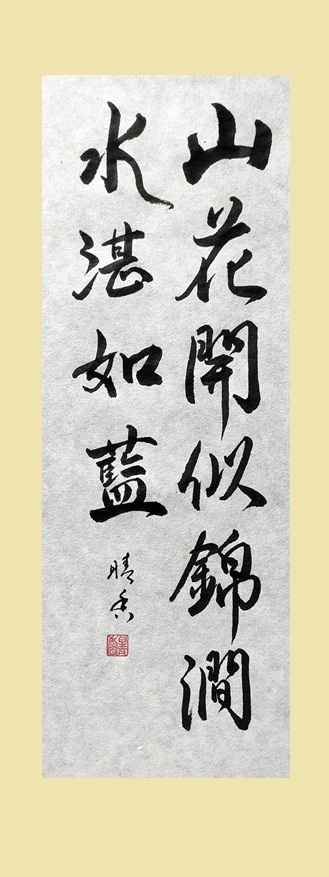 山花開似錦澗
水湛如藍
晴香